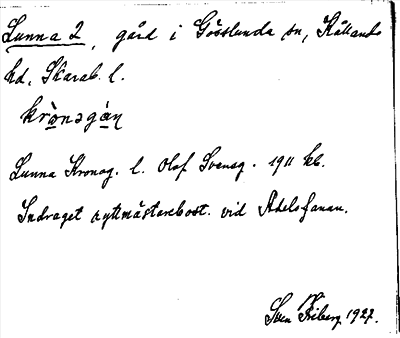 Lunna 2, gård i Gösslunda sn, Kållands
hd, Skarab. l.
krònsgàn
Lunna Kronog. l. Olof Svensg. 1911 kb.
Indraget ryttmästarebost. vid Adelsfanan.
Sven Friberg 1927.